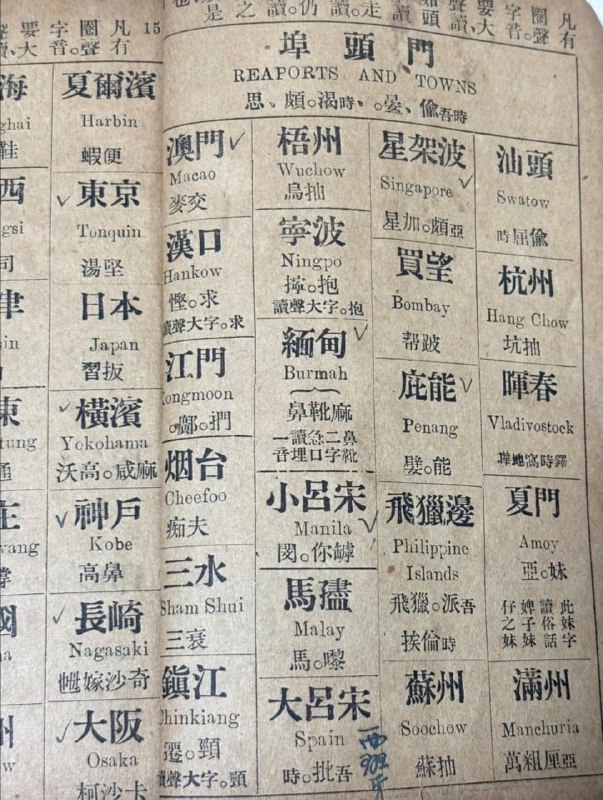 凡有
圈聲
字音。
要大
讀、
15
埠頭門
REAPORTS AND TOWNS
思、頗。渴時。晏、偷吾時
汕頭
Swatow
時屈偷
杭州
Hang Chow
坑抽
暉春
Vladivostock
夏門
Amoy
亞。妹
此妹字
讀俗話
婢子妹
仔之妹
滿州
Manchuria
萬組厘亞
星架波
Singapore
星加。頗亞
買望
Bombay
帮跛
庇能
Penang
劈。能
飛獵邊
Philippine
Islands
飛獵。派吾
挨倫時
蘇州
Soochow
蘇抽
梧州
Wuchow
烏抽
寧波
Ningpo
擰。抱
讀聲大字。抱
緬甸
Burmah
鼻靴麻
一讀急二鼻
音埋口字靴
小呂宋
Manila
閔。你罅
馬𡅏
Malay
馬。嚟
大呂宋
Spain
時。批吾
西班牙
澳門
Macao
麥交
漢口
Hankow
慳。求
讀聲大字。求
江門
Kongmoon
。鄺。捫
烟台
Cheefoo
痴夫
三水
Sham Shui
三衰
鎮江
Chinkiang
遷。頸
讀聲大字。頸
夏爾濱
Harbin
蝦便
東京
Tonquin
湯堅
日本
Japan
習扳
橫濱
Yokohama
沃。高。咸麻
神戶
Kobe
高鼻
長崎
Nagasaki
嫁沙奇
大阪
Osaka
柯沙卡
海
ghai
鞋
西
gsi
司
津
sin
東
tung
通
莊
wang
國
na
州
ow